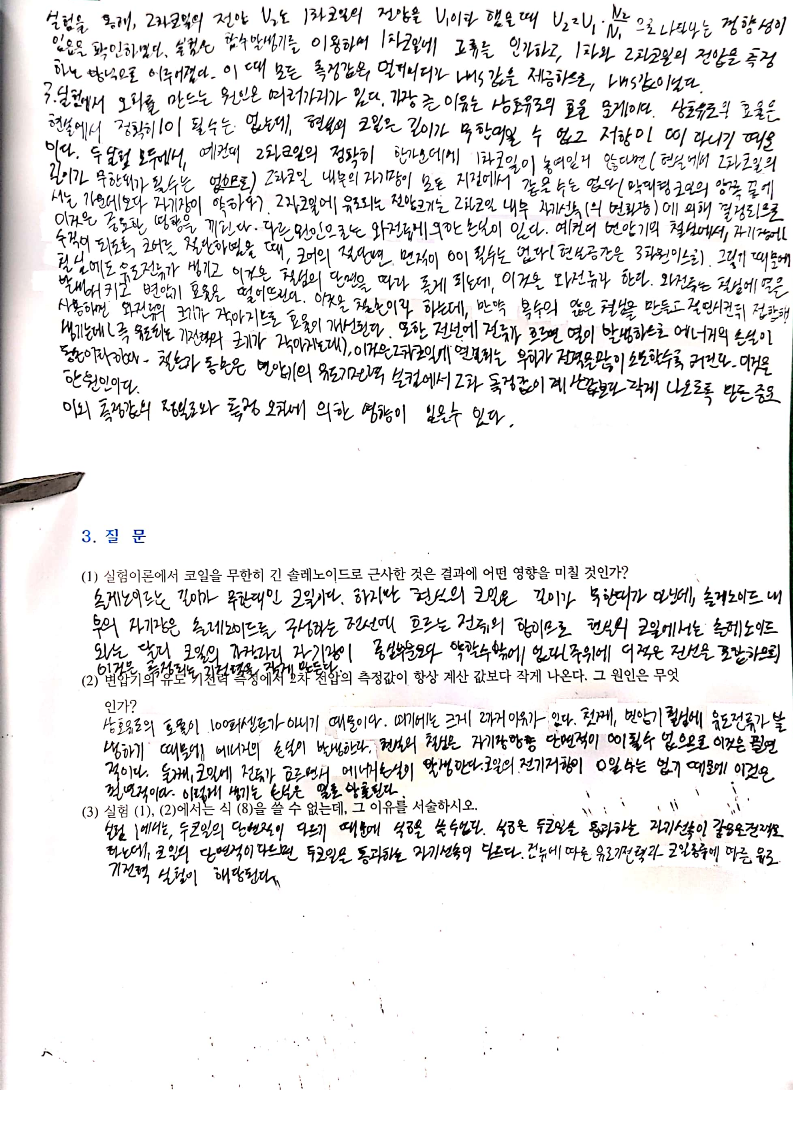 실험을 통해, 2차코일의 전압 V₂도 1차코일의 전압을 V₁이라 했을때 V₂=V₁·N₂/N₁ 으로 나타나는 경향성이
있음을 확인하였다. 실험은 함수발생기를 이용하여 1차코일에 교류를 인가하고, 1차와 2차코일의 전압을 측정
하는 방식으로 이루어졌다. 이 때 모든 측정값은 멀티미터가 rms 값을 제공하므로, rms값이었다.
3. 실험에서 오차를 만드는 원인은 여러가지가 있다. 가장 큰 이유는 상호유도의 효율 문제이다. 상호유도의 효율은
현실에서 정확히 1이 될수는 없는데, 현실의 코일은 길이가 무한대일 수 없고 저항이 0이 아니기 때문
이다. 두 실험 모두에서, 예컨대 2차코일의 정확히 한가운데에 1차코일이 놓여있지 않다면 (현실에서 2차코일의
길이가 무한대가 될수는 없으므로) 2차코일 내부의 자기장이 모든 지점에서 같을 수는 없다
서는 가운데보다 자기장이 약하다). 2차코일에 유도되는 전압크기는 2차코일 내부 자기선속(의 변화량)에 의해 결정되므로
이것은 중요한 영향을 끼친다. 다른 원인으로는 와전류에 의한 손실이 있다. 예컨대 변압기의 철심에서, 자기장에
수직이 되도록 코어를 절단하였을 때, 코어의 절단면 면적이 0이 될수는 없다 (현실공간은 3차원이므로). 그렇기 때문에
철심에도 유도전류가 생기고 이것은 철심의 단면을 따라 돌게 되는데, 이것을 와전류라 한다. 와전류는 철심에 열을
발생시키고 변압기 효율을 떨어뜨린다. 이것을 철손이라 하는데, 만약 복수의 얇은 철심을 만들고 절연시킨뒤 접합해
사용하면 와전류의 크기가 작아지므로 효율이 개선된다. 또한 전선에 전류가 흐르면 열이 발생하므로 에너지의 손실이
생기는데 (즉 유도되는 기전력의 크기가 작아지는데), 이것은 2차코일에 연결되는
동손이라 한다. 철손과 동손은 변압기의 유도기전력 실험에서 2차 측정값이 계산값보다 작게 나오도록 만든 중요
한 원인이다.
이외 측정값의 정밀도와 측정 오차에 의한 영향이 있을수 있다.
3. 질 문
(1) 실험이론에서 코일을 무한히 긴 솔레노이드로 근사한 것은 결과에 어떤 영향을 미칠 것인가?
솔레노이드는 길이가 무한대인 코일이다. 하지만 현실의 코일은 길이가 무한대가 아닌데, 솔레노이드 내
부의 자기장은 솔레노이드를 구성하는 전선에 흐르는 전류의 합이므로 현실의 코일에서는 솔레노이드
와는 달리 코일의 가장자리 자기장이 중심부분보다 약할수밖에 없다 (주위에 더 적은 전선을 포함하므로)
이것은 측정되는 기전력을 작게 만든다.
(2) 변압기의 유도 기전력 측정에서 2차 전압의 측정값이 항상 계산 값보다 작게 나온다. 그 원인은 무엇
인가?
상호유도의 효율이 100퍼센트가 아니기 때문이다. 여기에는 크게 2가지 이유가 있다. 첫째, 변압기 철심에 유도전류가 발
생하기 때문에 에너지의 손실이 발생한다. 현실의 철심은 자기장방향 단면적이 0이 될수 없으므로 이것은 필연
적이다. 둘째, 코일에 전류가 흐르면서 에너지손실이 발생한다. 코일의 전기저항이 0일 수는 없기 때문에 이것은
필연적이다. 이렇게 생기는 손실은 열로 방출된다.
(3) 실험 (1), (2)에서는 식 (8)을 쓸 수 없는데, 그 이유를 서술하시오.
실험 1에서는, 두코일의 단면적이 다르기 때문에 식8을 쓸수없다. 식8은 두코일을 통과하는 자기선속이 같음을 전제로
하는데, 코일의 단면적이 다르면 두코일을 통과하는 자기선속이 다르다. 전류에 따른 유도기전력과 코일종류에 따른 유도
기전력 실험이 해당된다.